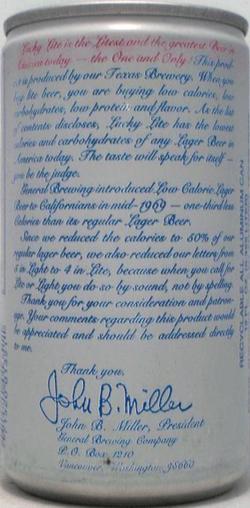 Lucky Lite is the Litest and the greatest Beer in
America today. — the One and Only! This prod-
uct is produced by our Texas Brewery. When you
buy lite beer, you are buying low calories, low
carbohydrates, low protein, and flavor. As the list
of contents discloses, Lucky Lite has the lowest
calories and carbohydrates of any Lager Beer in
America today. The taste will speak for itself —
you be the judge.
General Brewing introduced Low Calorie Lager
Beer to Californians in mid-1969 — one-third less
Calories than its regular Lager Beer.
Since we reduced the calories to 50% of our
regular lager beer, we also reduced our letters from
5 in Light to 4 in Lite, because when you call for
Lite or Light you do so by sound, not by spelling.
Thank you for your consideration and patron-
age. Your comments regarding this product would
be appreciated and should be addressed directly
to me.
Thank you,
John B. Miller
John B. Miller, President
General Brewing Company
P. O. Box 1210
Vancouver, Washington 98660